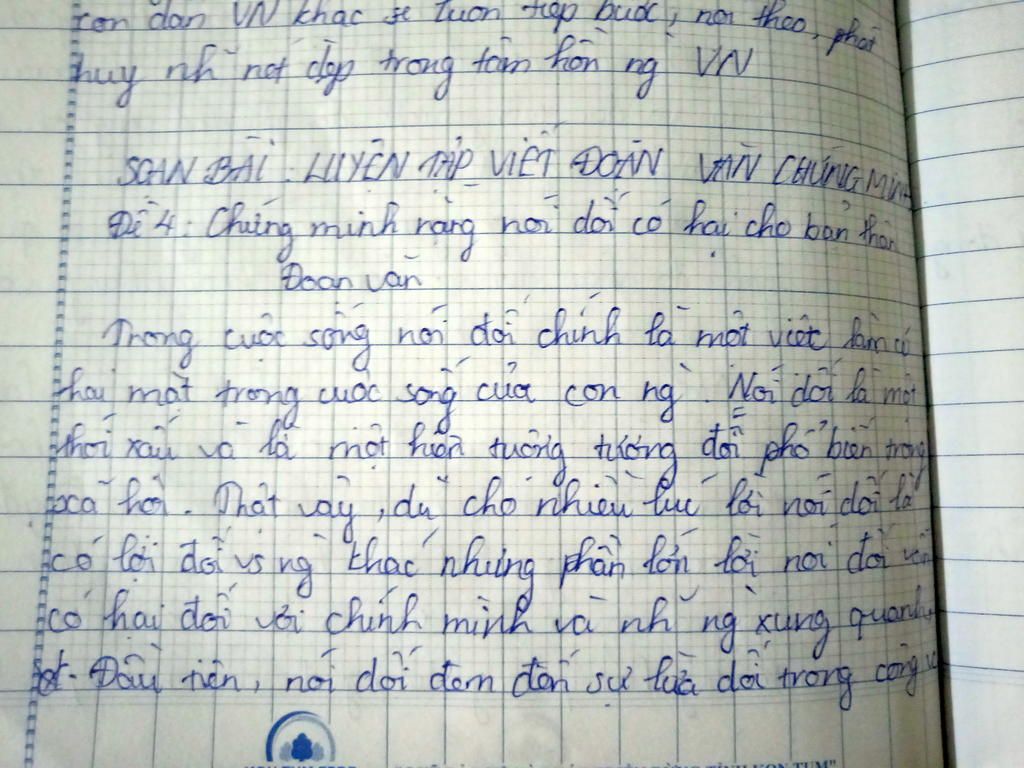 con dân VN khác sẽ luôn tiếp bước, noi theo, phát
huy nh~ nét đẹp trong tâm hồn ng` VN
SOẠN BÀI: LUYỆN TẬP VIẾT ĐOẠN VĂN CHỨNG MINH
Đề 4: Chứng minh rằng nói dối có hại cho bản thân
Đoạn văn
Trong cuộc sống nói dối chính là một việc làm có
hại một trong cuộc sống của con ng`. Nói dối là một
thói xấu và là một hiện tượng tương đối phổ biến trong
xã hội. Thật vậy, dù cho nhiều lúc lời nói dối là
có lợi đối vs ng` khác nhưng phần lớn lời nói dối vẫn
có hại đối với chính mình và nh~ ng` xung quanh
Đầu tiên, nói dối đem đến sự lừa dối trong công